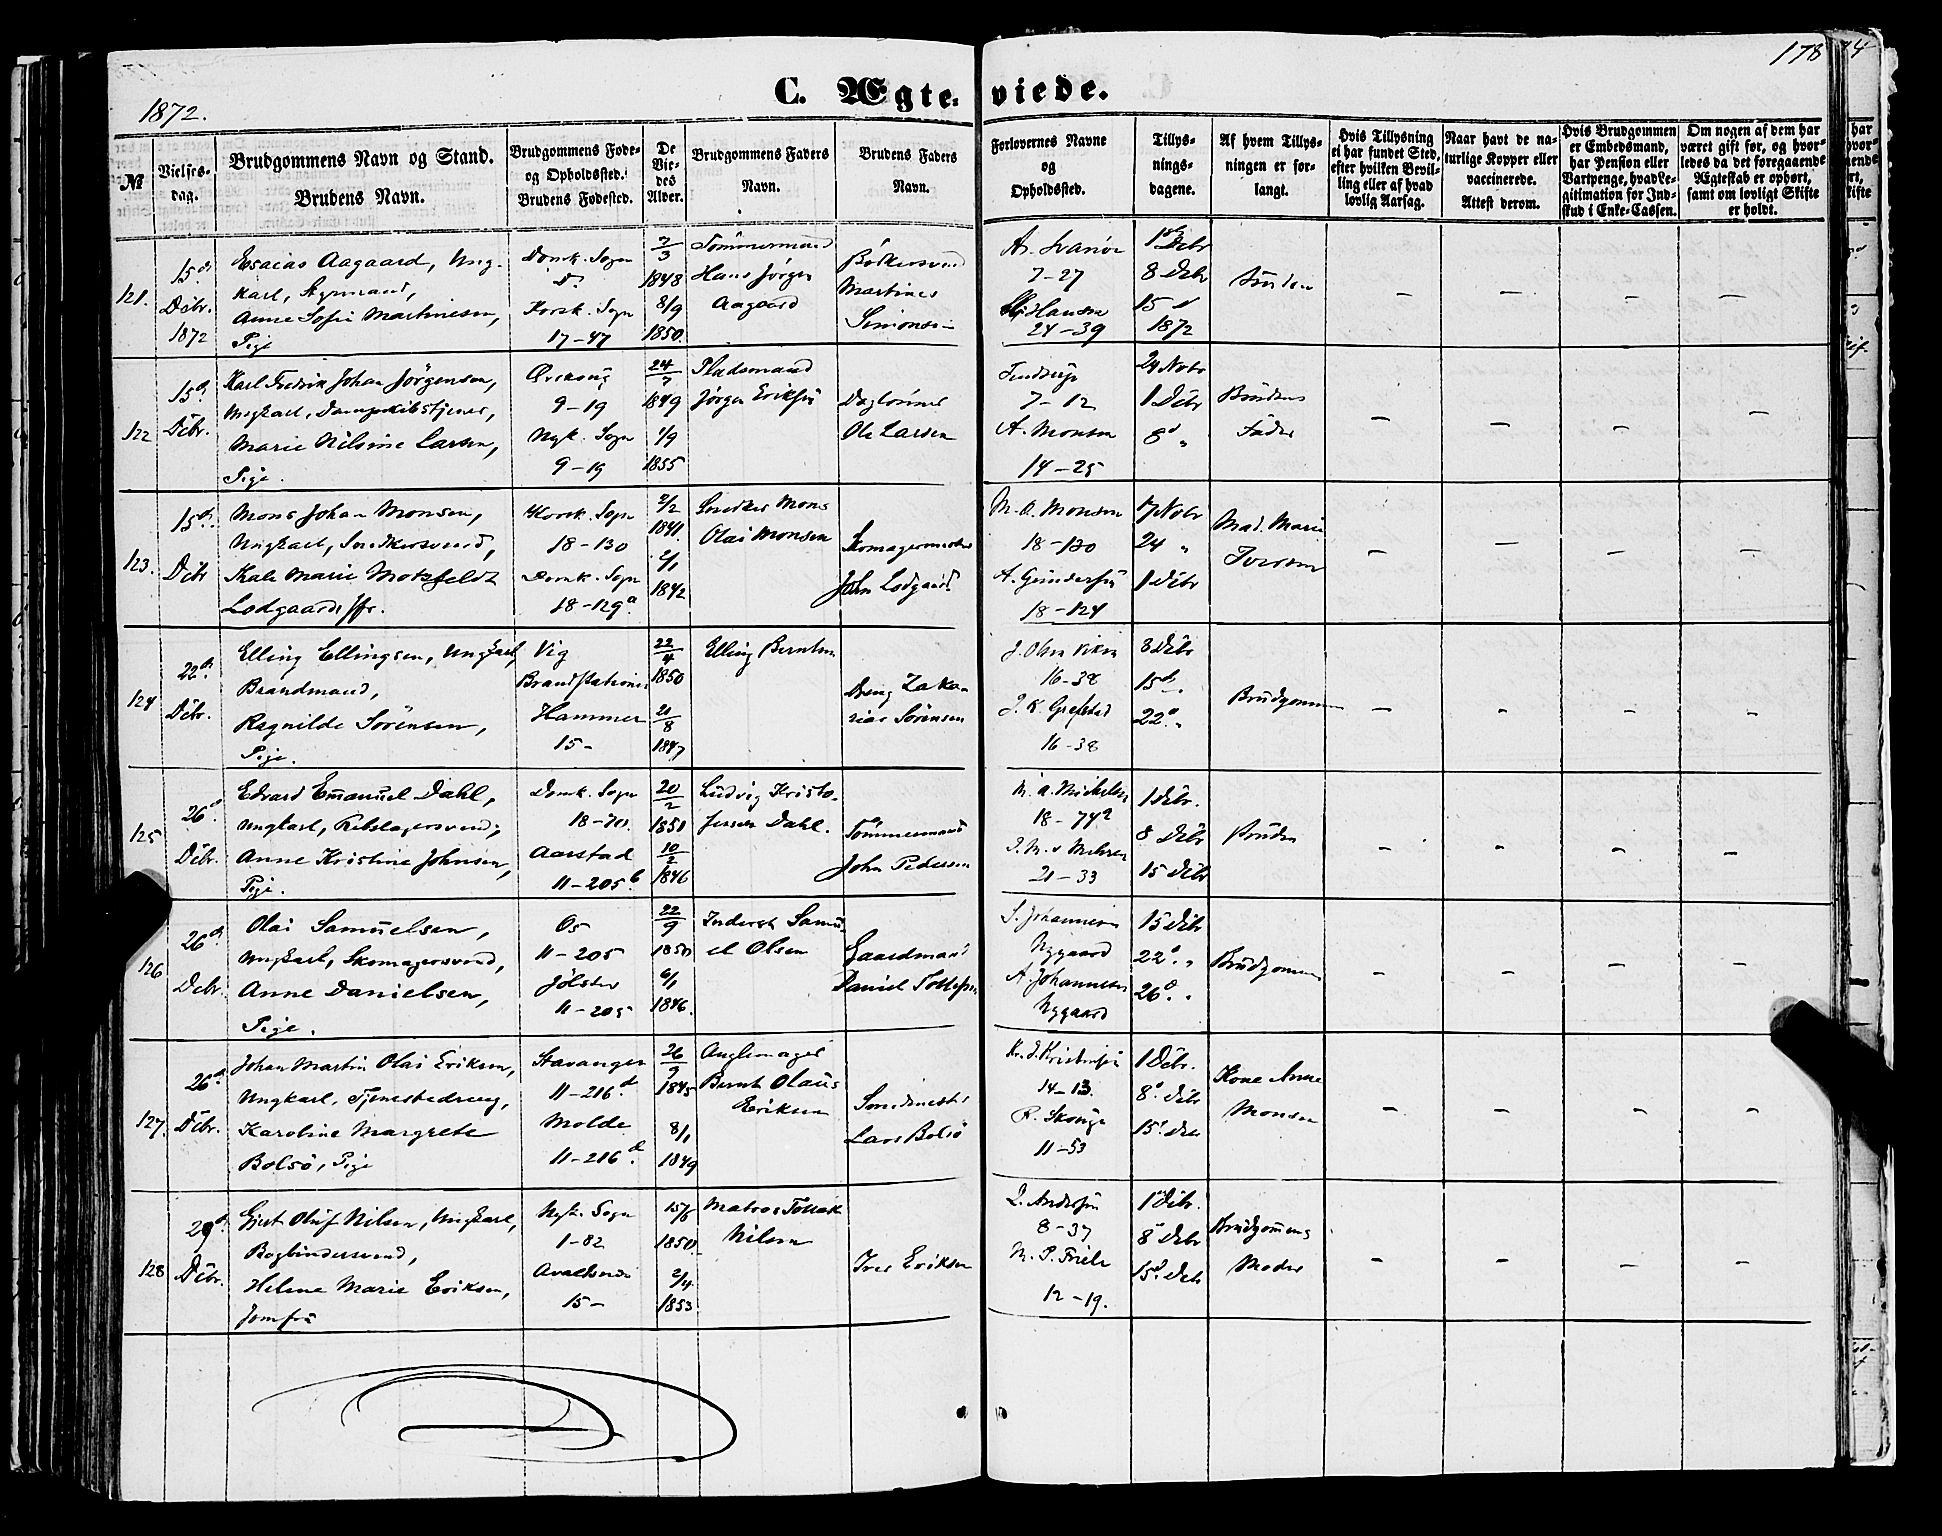 178
1872.
C. Ægte- viede.
№
Vielses-
dag.
Brudgommens Navn og Stand.
Brudens Navn.
Brudgommens Føde-
og Opholdssted.
Brudens Fødested.
De
Vie-
des
Alder.
Brudgommens Faders
Navn.
Brudens Faders
Navn.
Forlovernes Navne
og
Opholdssted.
Tillys-
nings-
dagene.
Af hvem Tillys-
ningen er for-
langt.
Hvis Tillysning
ei har fundet Sted,
efter hvilken Bevil-
ling eller af hvad
lovlig Aarsag.
Naar havt de na-
turlige Kopper eller
vaccinerede.
Attest derom.
Hvis Brudgommen
er Embedsmand,
har Pension eller
Vartpenge, hvad Le-
gitimation for Ind-
skud i Enke-Cassen.
Om nogen af dem har
været gift før, og hvor-
ledes da det foregaaende
Ægteskab er ophørt,
samt om lovligt Skifte
er holdt.
121.
15de
Debr.
1872
Esaias Aagaard, Ung-
karl, Styrmand,
Anne Sofie Martinesen,
Pige
Domk. Sogn
Korsk. Sogn
17-47
7/3
1848
8/9
1850.
Tømmermand
Hans Jørgen
Aagaard
Bødkersvend
Martines
Simonsen
7-27
Hansen
24-39
1ste Debr
8 Debr
15 d
1872
Bruden
122
15d.
Debr.
Karl Fredrik Johan Jørgensen,
Ungkarl, Dampskibstjener,
Marie Nilsine Larsen,
Pige.
9-19
Nyk. Sogn
9-19
24/7
1849
1/9
1855
Pladsmand
Jørgen Eriksen
Dagleiner
Ole Larsen
7-12
A. Monsen
14-25
24 Novbr
1 Debr
8d "
Brudens
Fader
123.
15de
Debr
Mons Johan Monsen,
Ungkarl, Snedkersvend,
Kale Marie Motzfeldt
Lodgaard, Jfr.
Korsk. Sogn
18-130
Domk. Sogn
18-129a.
2/2
1841.
2/1
1842
Snedker Mons
Olai Monsen
Skomagermester
John Lodgaard.
M. O. Monsen
18-130
A. Gundersen
18-124
17 Novbr
24 "
1 Debr
Mad. Marie
Iversen
124
22de
Debr.
Elling Ellingsen, Ungkarl,
Brandmand,
Ragnilde Sørensen,
Pige.
Vig
Brandstationen
Hammer
15-
22/4
1850
21/8
1847
Elling Berntsen
Dreng Zaka-
rias Sørensen
J. Olsen Viken
16-38
J. K. Grefstad
16-38
8 Debr
15d "
22d "
Brudgommen
125
26d
Debr.
Edvard Emanuel Dahl,
Ungkarl, Rebslagersvend,
Anne Kristine Johnsen,
Pige.
Domk. Sogn
18-70.
Aarstad
11-205b
20/2
1850
10/2
1846
Ludvig Kristo-
fersen Dahl.
Tømmermand
John Pedersen
18-74a
21-33
1 Debr.
8 Debr
15 Debr
Bruden
126
26de
Debr.
Olai Samuelsen,
Ungkarl, Skomagersvend,
Anne Danielsen,
Pige.
Os
11-205
Jølster
11-205
22/9
1850
6/1
1846.
Inderst Samu-
el Olsen
Gaardmand
Daniel Tollefsen
S. Johannesen
Nygaard
A. Johannesen
Nygaard
15 Debr
22d. "
26d. "
Brudgommen
127.
26de
Debr.
Johan Martin Olai Eriksen,
Ungkarl, Tjenestedreng,
Karoline Margrete
Bolsø, Pige
Stavanger
11-216d
Molde
11-216d.
26/9
1845
8/1
1849
Anglemager
Bernt Olaus
Eriksen
Lars Bolsø
Kr. J. Kristensen
14-13.
R. Skonge
11-53
1 Debr.
8d Debr
15d Debr
Kone Anne
Monsen
128
29de
Debr.
Gjert Oluf Nilsen, Ungkarl,
Bogbindersvend,
Helene Marie Eriksen,
Jomfru
Nyk. Sogn
1-82
Avaldsnes
15-
15/6
1850.
2/4.
1853
Matros Tollak
Nilsen
Iver Eriksen
L. Andersen
8-37
M. P. Friele
12-19.
1ste Debr.
8d Debr
15d. Debr
Brudgommens
Moder